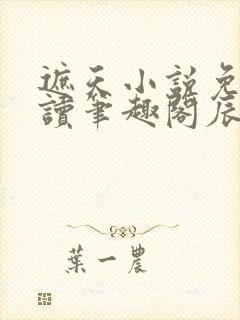 遮天小說免
讀筆趣閣辰
葉一農